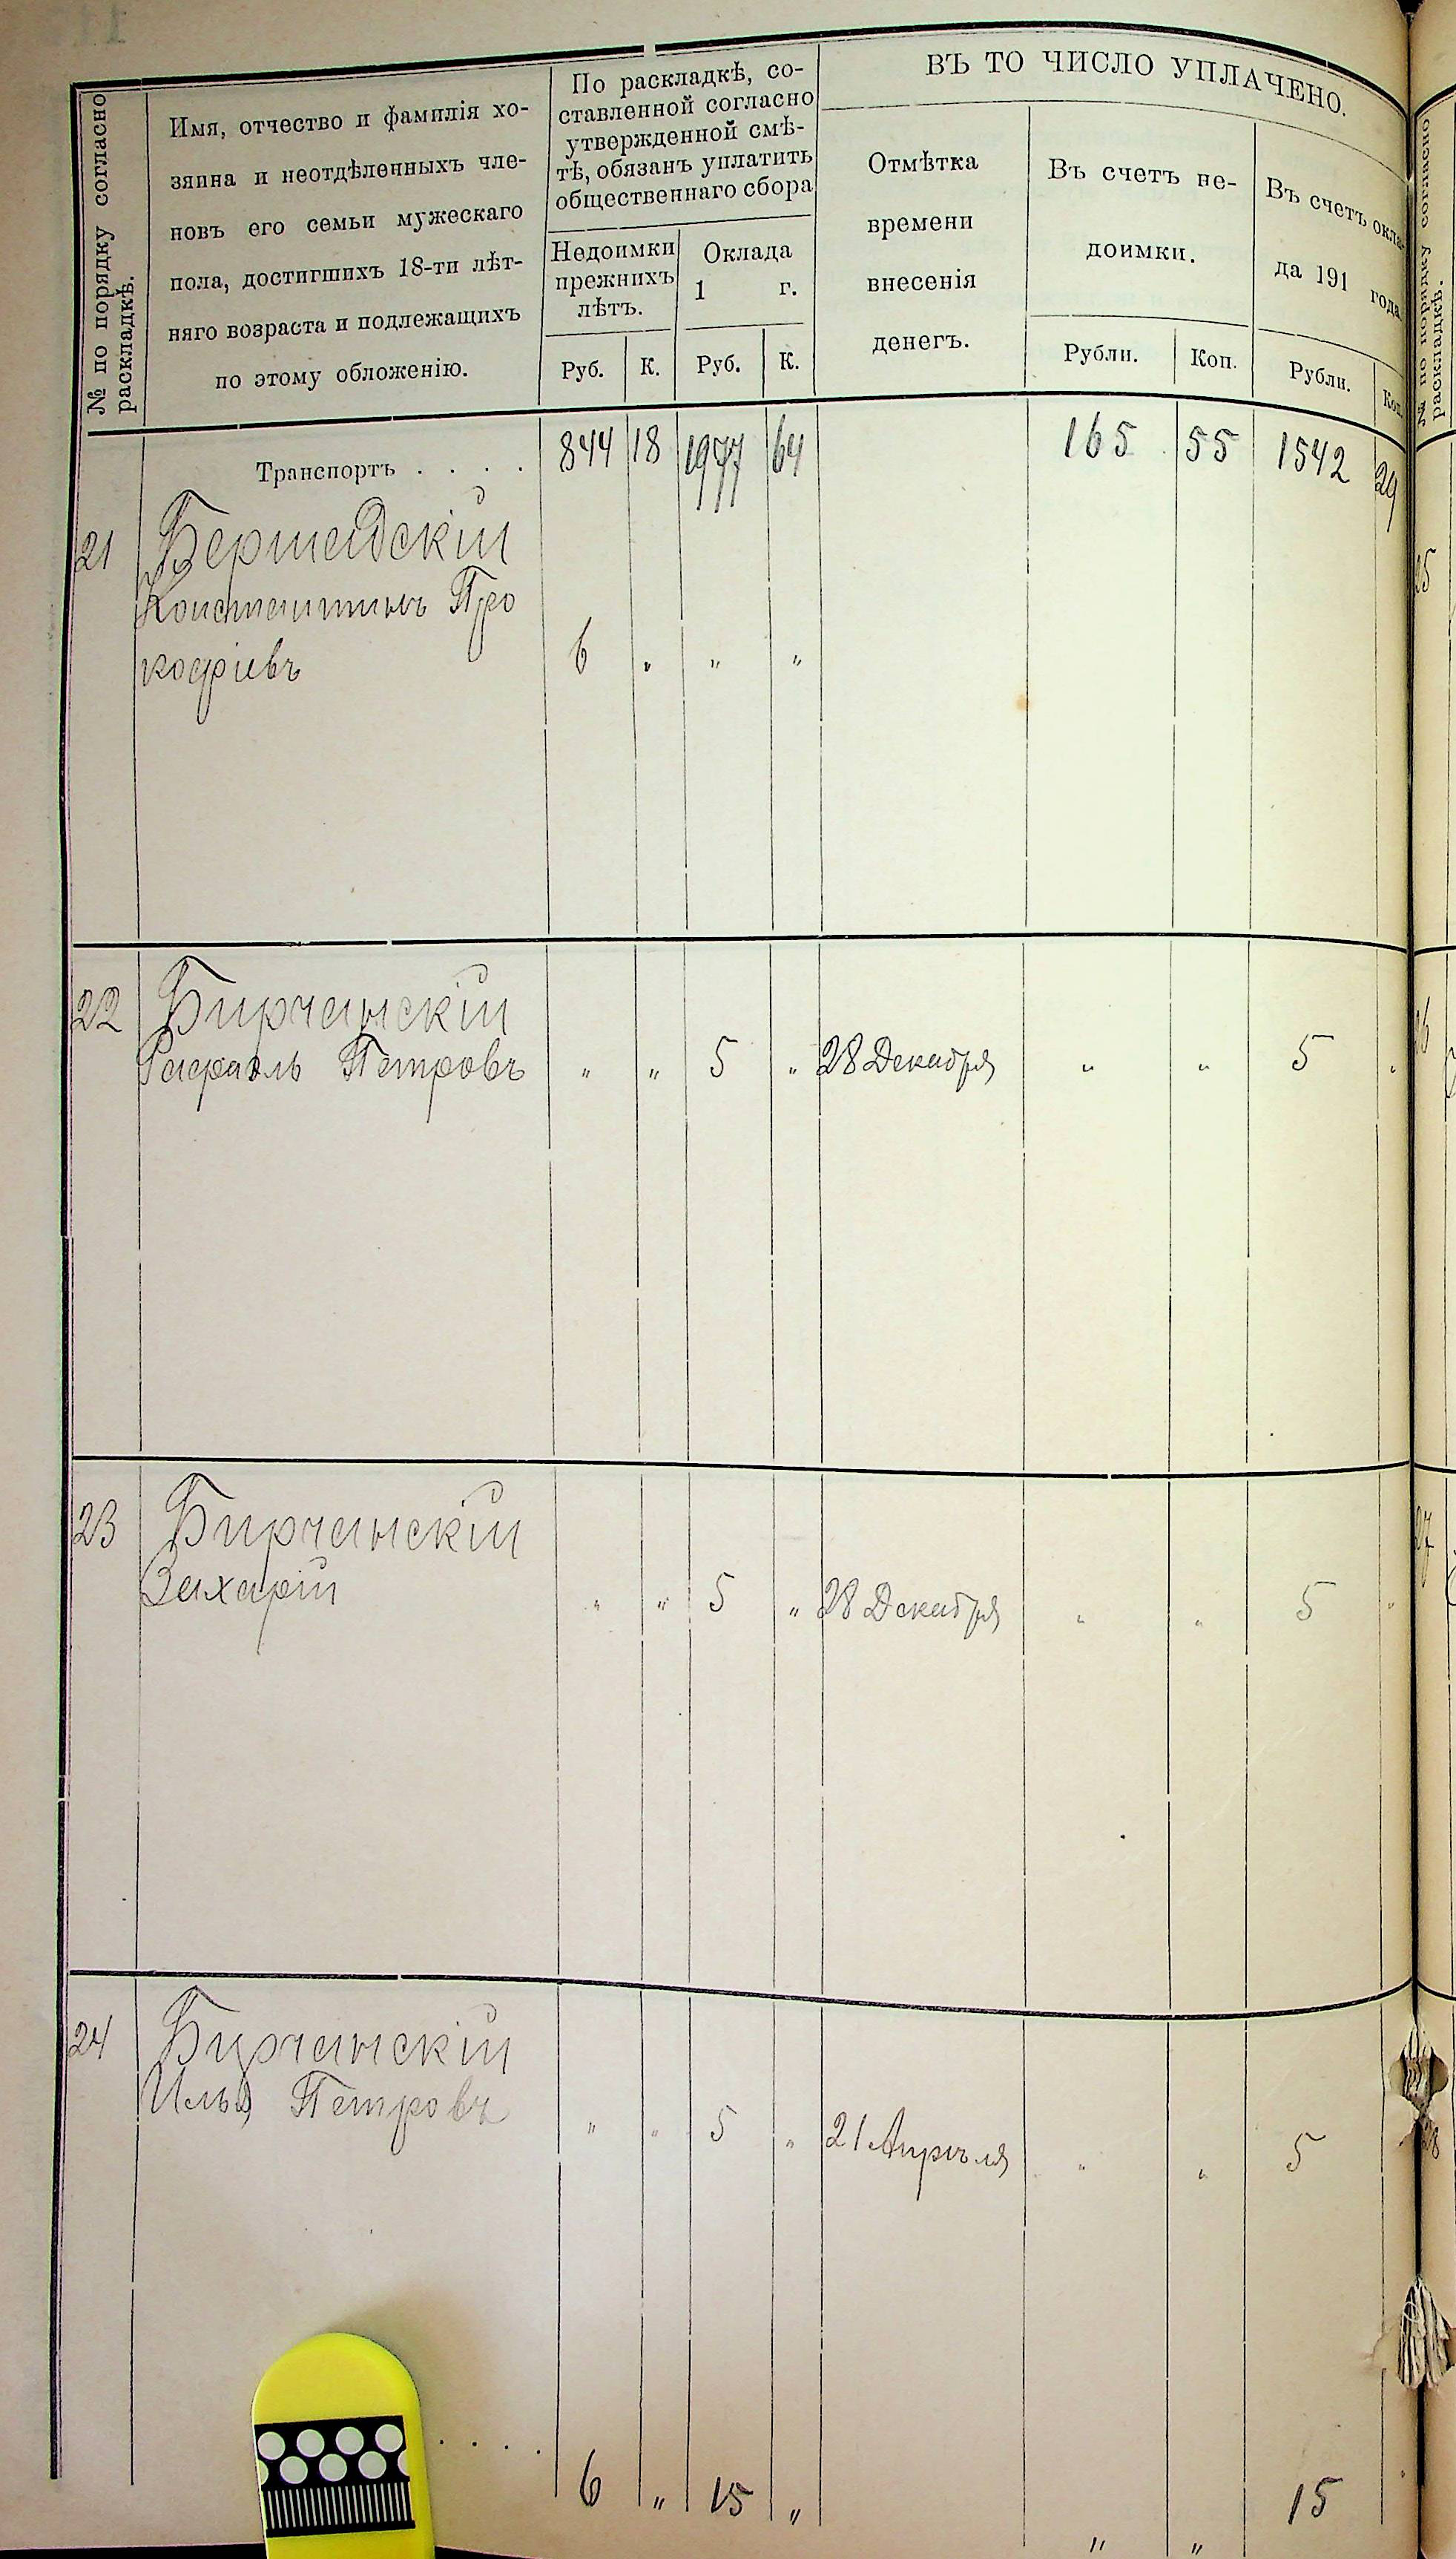 № по порядку согласно
раскладкѣ.
Имя, отчество и фамилія хо-
зяина и неотдѣленныхъ чле-
новъ его семьи мужескаго
пола, достигшихъ 18-ти лѣт-
няго возраста и подлежащихъ
по этому обложенію.
По раскладкѣ, со-
ставленной согласно
утвержденной смѣ-
тѣ, обязанъ уплатить
общественнаго сбора
Недоимки
прежнихъ
лѣтъ.
Оклада
1 г.
Руб. К. Руб. К.
ВЪ ТО ЧИСЛО УПЛАЧЕНО.
Отмѣтка
времени
внесенія
денегъ.
Въ счетъ не-
доимки.
Рубли. Коп.
Въ счетъ окла-
да 191 года
Рубли. Коп.
Транспортъ . . . . 844 18 1977 64 165 55 1542 29
21 Бершадскій
Константинъ Про
кофіевъ 6 „ „ „
22 Бирчанскій
Рафаэль Петровъ „ „ 5 „ 28 Декабря „ „ 5 „
23 Бирчанскій
Захарій „ „ 5 „ 28 Декабря „ „ 5 „
24 Бирчанскій
Илья Петровъ „ „ 5 „ 21 Апрѣля „ „ 5
. . . . 6 „ 15 „ „ „ 15
№ по порядку согласно
раскладкѣ.